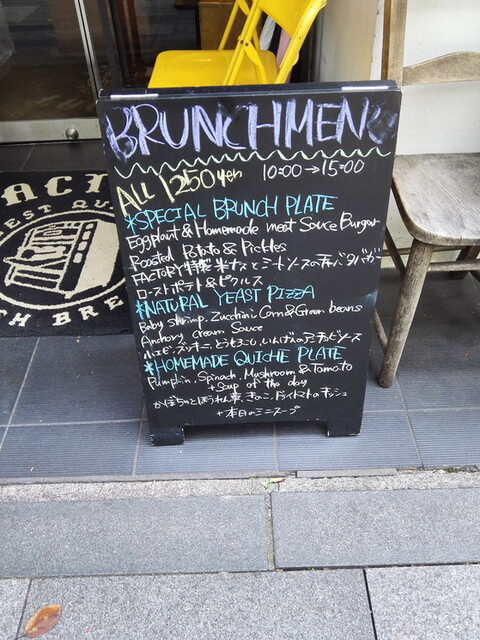 BRUNCHMENU
ALL 1250yen 10:00→15:00
*SPECIAL BRUNCH PLATE
Eggplant & Homemade meat Sauce Burger
Roasted Potato & Pickles
FACTORY特製 米ナスとミートソースの
ローストポテト&ピクルス
*NATURAL YEAST PIZZA
Baby shrimp, Zucchini, Corn & Green beans
Anchovy Cream Sauce
ズッキーニ、とうもろこし、いんげんのアンチョビソース
*HOMEMADE QUICHE PLATE
Pumpkin, Spinach, Mushroom & Tomato
+Soup of the day
かぼちゃとほうれん草、きのこ、ドライトマトのキッシュ
+本日のミニスープ